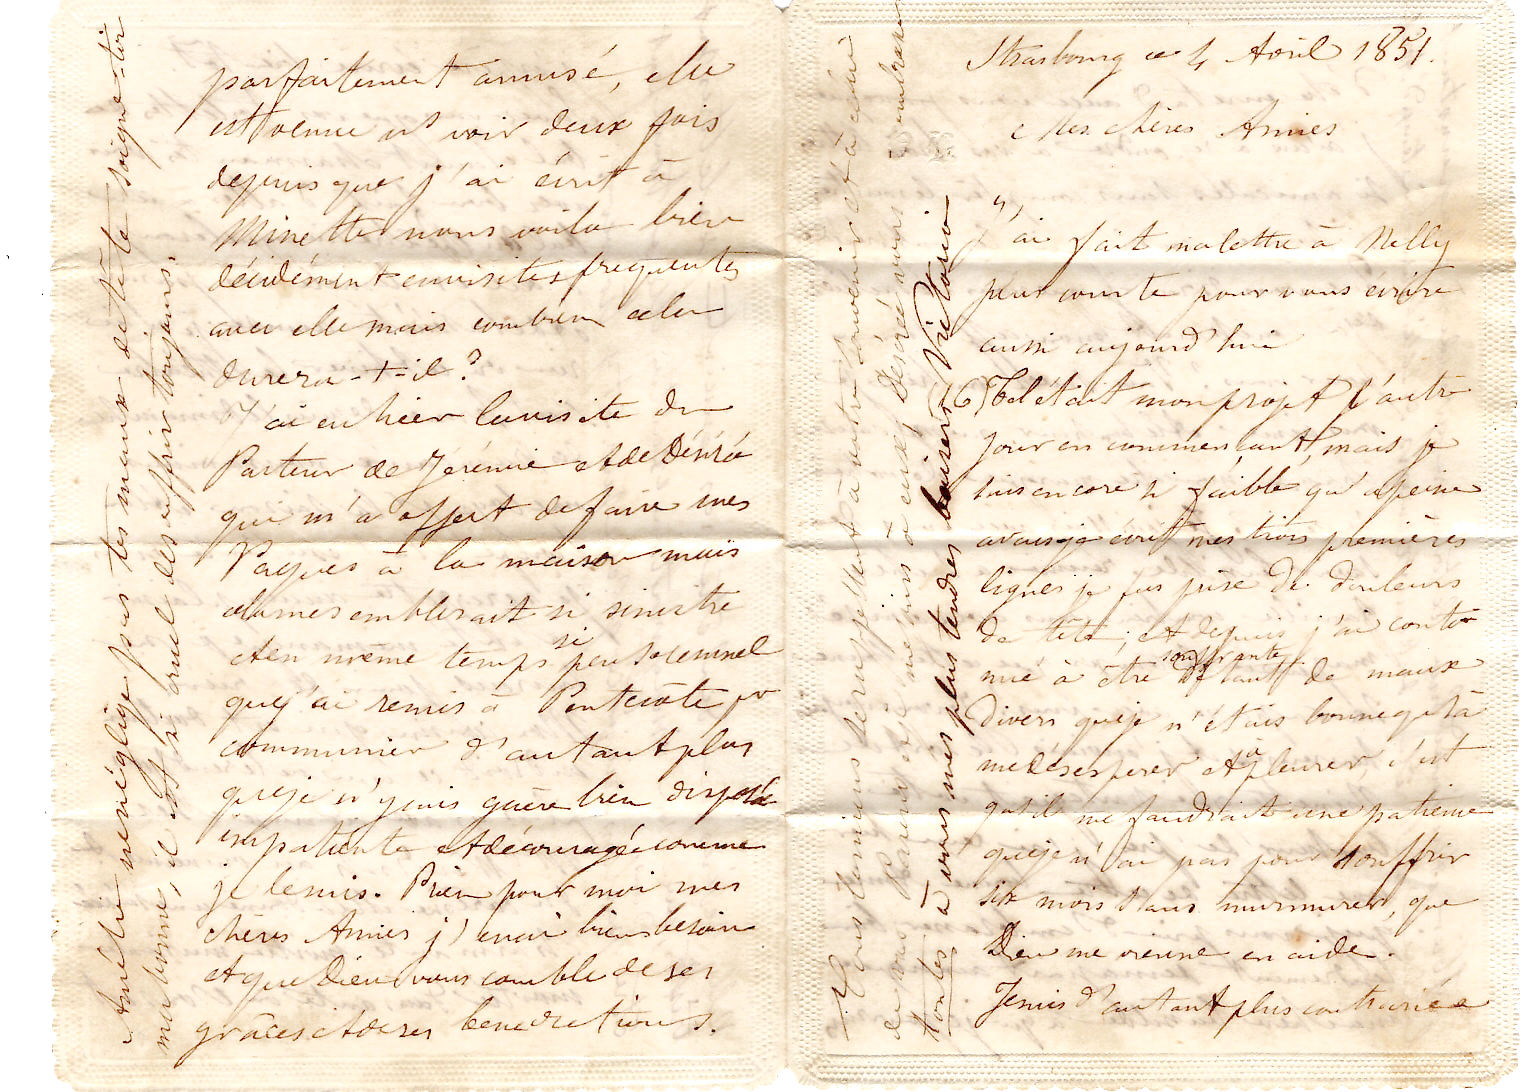 Strasbourg ce 4 Avril 1851.
Mes chères Amies
J'ai fait ma lettre à Nelly
plus courte pour vous écrire
aussi aujourd'hui
(6) Tel était mon projet l'autre
jour en commencant, mais je
suis encore si faible, qu'a peine
avais-je écrit mes trois premières
lignes je fus prise de douleurs
de tête, et depuis j'ai conti
nué à être souffrante de tant de maux
divers que je n'étais bonne qu'à
me désesperer et à pleurer, c'est
qu'il me faudrait une patience
que je n'ai pas pour souffrir
six mois sans murmurer, que
Dieu me vienne en aide.
Je suis d'autant plus contrariée
parfaitement amusé, elle
est venue ns voir deux fois
depuis que j'ai écrit à
Minette nous voila bien
décidément en visites frequentes
avec elle mais combien cela
durera-t-il?
J'ai eu hier la visite du
Pasteur de Jérémie et de Désiré
qui m'a offert de faire mes
Paques à la maison mais
cela me semblerait si sinistre
et en même temps si peu solennel
que j'ai remis à Pentecôte pr
communier d'autant plus
que je n'y suis guère bien disposée
impatiente et découragée comme
je le suis. Priez pour moi mes
chères Amies j'en ai bien besoin
et que Dieu vous comble de ses
grâces et de ses benedictions.
Amélie ne néglige pas tes maux de tête soigne-toi
ma bonne, il est si cruel de souffrir toujours.
Tous les miens se rappellent à votre souvenir et à celui
de vos Parents, me joins à eux, Désirée vous embrasse
toutes à vous mes plus tendres baisers Victorine